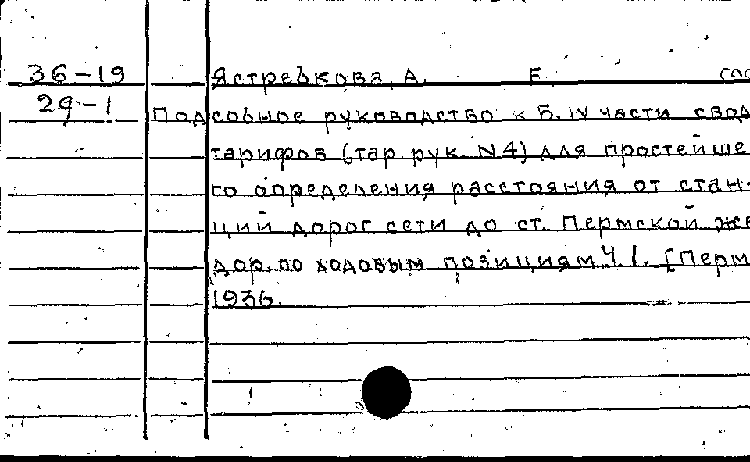 36-19 Ястребкова, А. Е. сос
29-1 Подсобное руководство к Б. IV части свод
тарифов (тар. рук. №4) для простейше
го определения расстояния от стан-
ций дорог сети до ст. Пермской же
дор. по ходовым позициям Ч. 1. [Перм
1936.